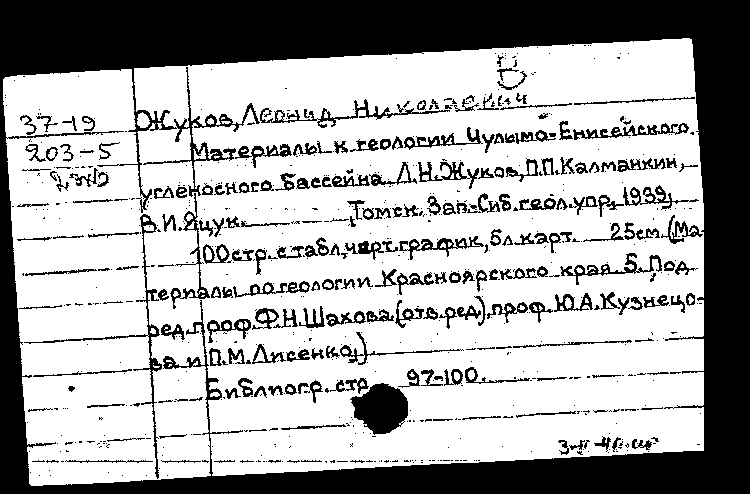 В
37-19 Жуков, Леонид Николаевич
203-5 Материалы к геологии Чулымо-Енисейского
угленосного бассейна. Л.Н.Жуков, П.П.Калманкин,
В.И.Яцук. Томск. Зап.-Сиб.геол.упр, 1939,
100стр. с табл, черт. график, бл. карт. 25см. (Ма-
териалы по геологии Красноярского края 5. Под
ред. проф. Ф.Н.Шахова. (отв. ред), проф. Ю.А.Кузнецо-
ва и П.М.Лисенко,)
Библиогр. стр. 97-100.